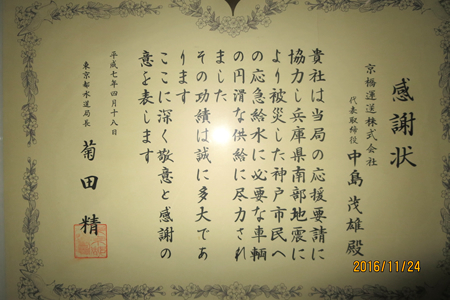 感謝状
京福運送株式会社
代表取締役 中島茂雄殿
貴社は当局の応援要請に
協力し兵庫県南部地震に
より被災した神戸市民へ
の応急給水に必要な車輌
の円滑な供給に尽力され
ました
その功績は誠に多大であ
ります
ここに深く敬意と感謝の
意を表します
平成七年四月十八日
東京都水道局長 菊田精
2016/11/24